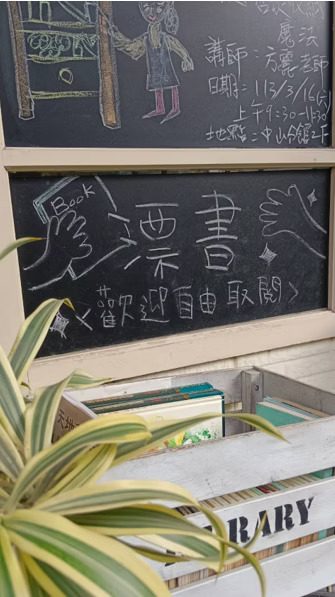 魔法
講師：方麗老師
日期：113/3/16(六)
上午9:30-11:30
地點：中山分館2F
Book
漂書
<歡迎自由取閱>
LIBRARY